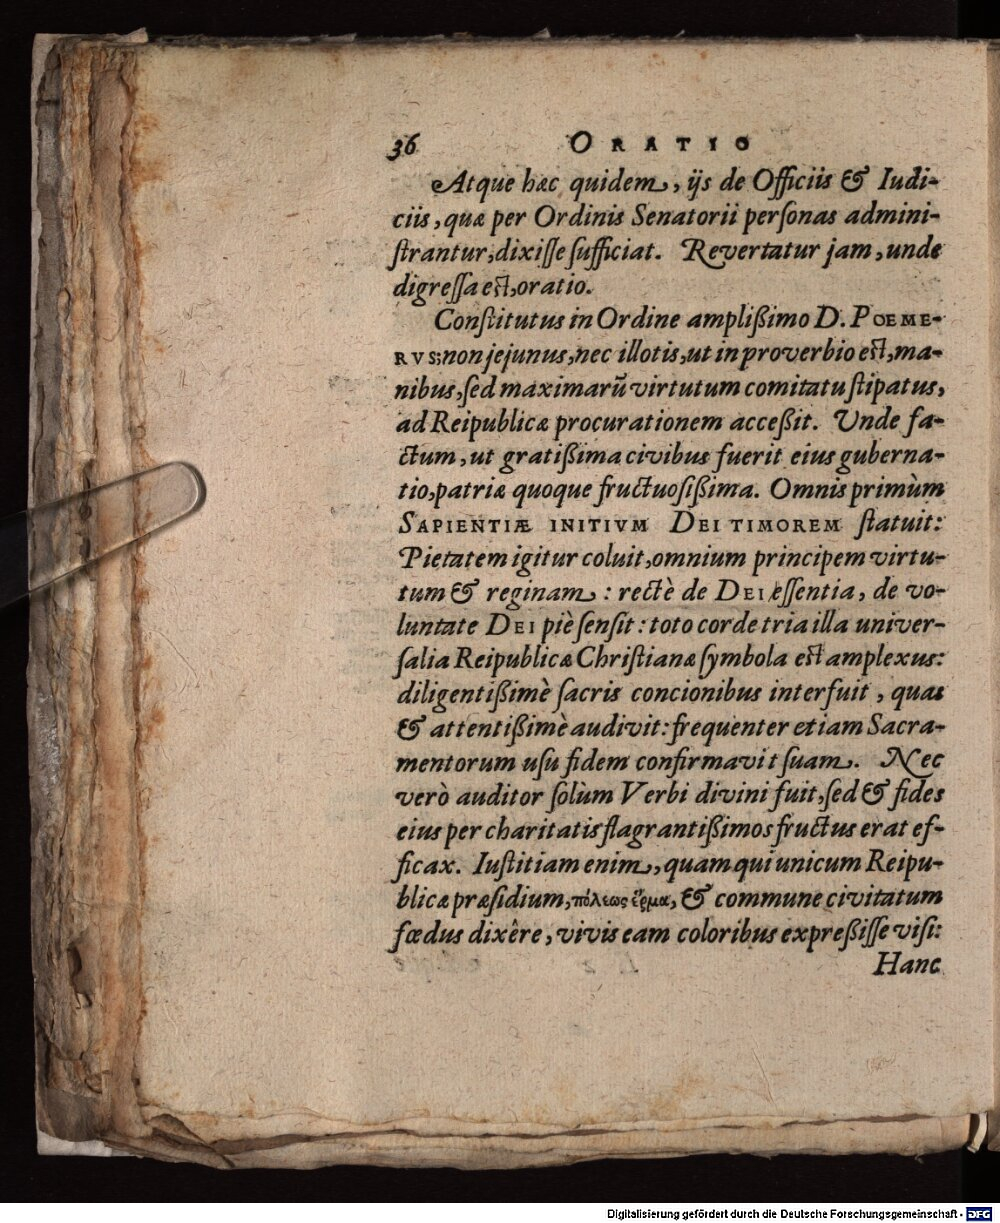 36 ORATIO
Atque hæc quidem, ijs de Officiis & Iudi-
ciis, quæ per Ordinis Senatorii perſonas admini-
ſtrantur, dixiſſe ſufficiat. Revertatur jam, unde
digreſſa eſt, oratio.
Conſtitutus in Ordine amplißimo D. POEME-
RVS; non jejunus, nec illotis, ut in proverbio eſt, ma-
nibus, ſed maximarũ virtutum comitatu ſtipatus,
ad Reipublicæ procurationem acceßit. Unde fa-
ctum, ut gratißima civibus fuerit eius guberna-
tio, patriæ quoque fructuoſißima. Omnis primùm
SAPIENTIÆ INITIVM DEI TIMOREM ſtatuit:
Pietatem igitur coluit, omnium principem virtu-
tum & reginam: rectè de DEI eſſentia, de vo-
luntate DEI piè ſenſit: toto corde tria illa univer-
ſalia Reipublicæ Chriſtianæ ſymbola eſt amplexus:
diligentißimè ſacris concionibus interfuit, quas
& attentißimè audivit: frequenter etiam Sacra-
mentorum uſu fidem confirmavit ſuam. Nec
verò auditor ſolùm Verbi divini fuit, ſed & fides
eius per charitatis flagrantißimos fructus erat ef-
ficax. Iuſtitiam enim, quam qui unicum Reipu-
blicæ præſidium, πόλεως ἕρμα, & commune civitatum
fœdus dixêre, vivis eam coloribus expreßiſſe viſi:
Hanc
Digitalisierung gefördert durch die Deutsche Forschungsgemeinschaft - DFG